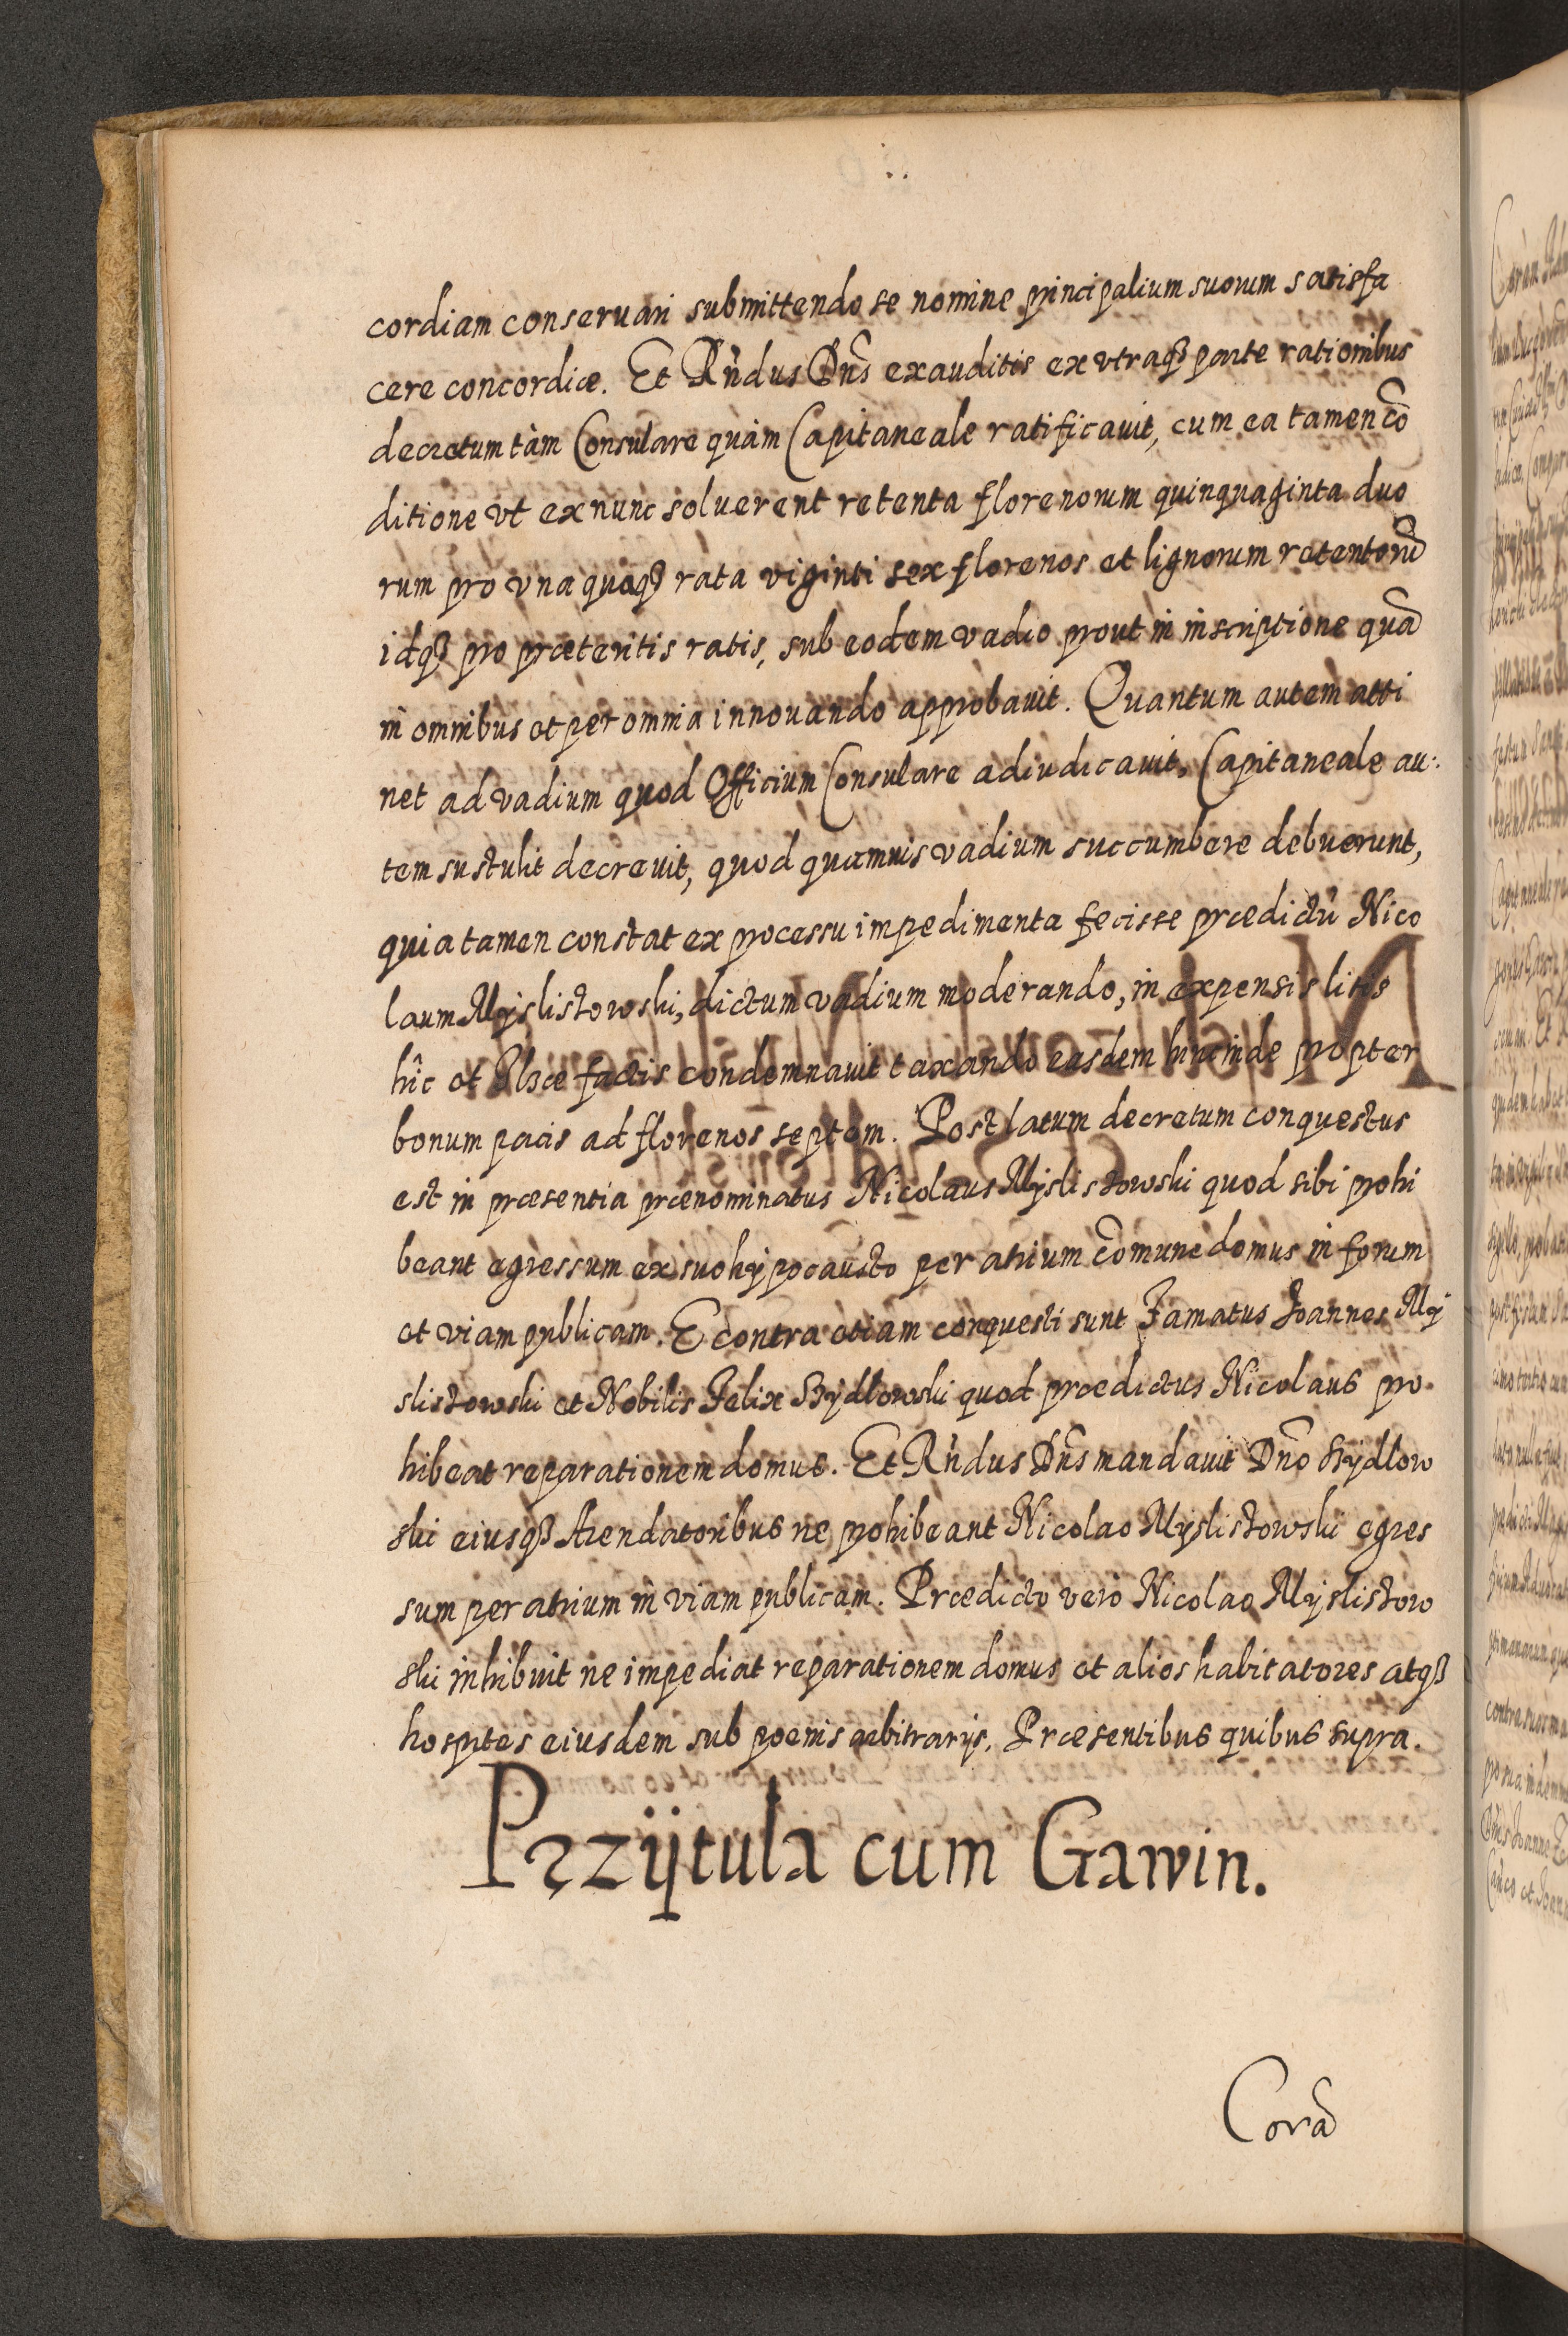 cordiam conseruari submittendo se nomine principalium suorum satisfa
cere concordiæ. Et Rńdus Dn̄s exauditis ex vtraqꝫ parte rationibus
decretum tàm Consulare quàm Capitaneale ratificauit, cum ea tamen cō
ditione vt ex nunc soluerent retenta florenorum quinquaginta duo
rum pro vna quaqꝫ rata viginti sex florenos et lignorum retentorū
idqꝫ pro præteritis ratis, sub eodem vadio prout in inscriptione quā
in omnibus et per omnia innouando approbauit. Quantum autem atti
net ad vadium quod Officium Consulare adiudicauit, Capitaneale au:
tem sustulit decreuit, quod quamuis vadium succumbere debuerunt,
quia tamen constat ex processu impedimenta fecisse prædictū Nico
laum Myslistowski, dictum vadium moderando, in expensis litis
hîc et Ilscæ factis condemnauit taxando easdem hincinde propter
bonum pacis ad florenos septem. Post latum decretum conquestus
est in præsentia prænominatus Nicolaus Myslistowski quod sibi prohi
beant egressum ex suo hypocausto per atrium com̄une domus in forum
et viam publicam. E contra etiam conquesti sunt Famatus Joannes My
slistowski et Nobilis Felix Szydłowski quod prædictus Nicolaus pro
hibeat reparationem domus. Et Rńdus Dn̄s mandauit Dn̄o Szydłow
ski eiusqꝫ Arendatoribus ne prohibeant Nicolao Myslistowski egres
sum per atrium in viam publicam. Prædicto verò Nicolao Myslistow
ski inhibuit ne impediat reparationem domus et alios habitatores atqꝫ
hospites eiusdem sub poenis arbitrarijs. Præsentibus quibus supra.
Przÿtuła cum Gawin.
Corā